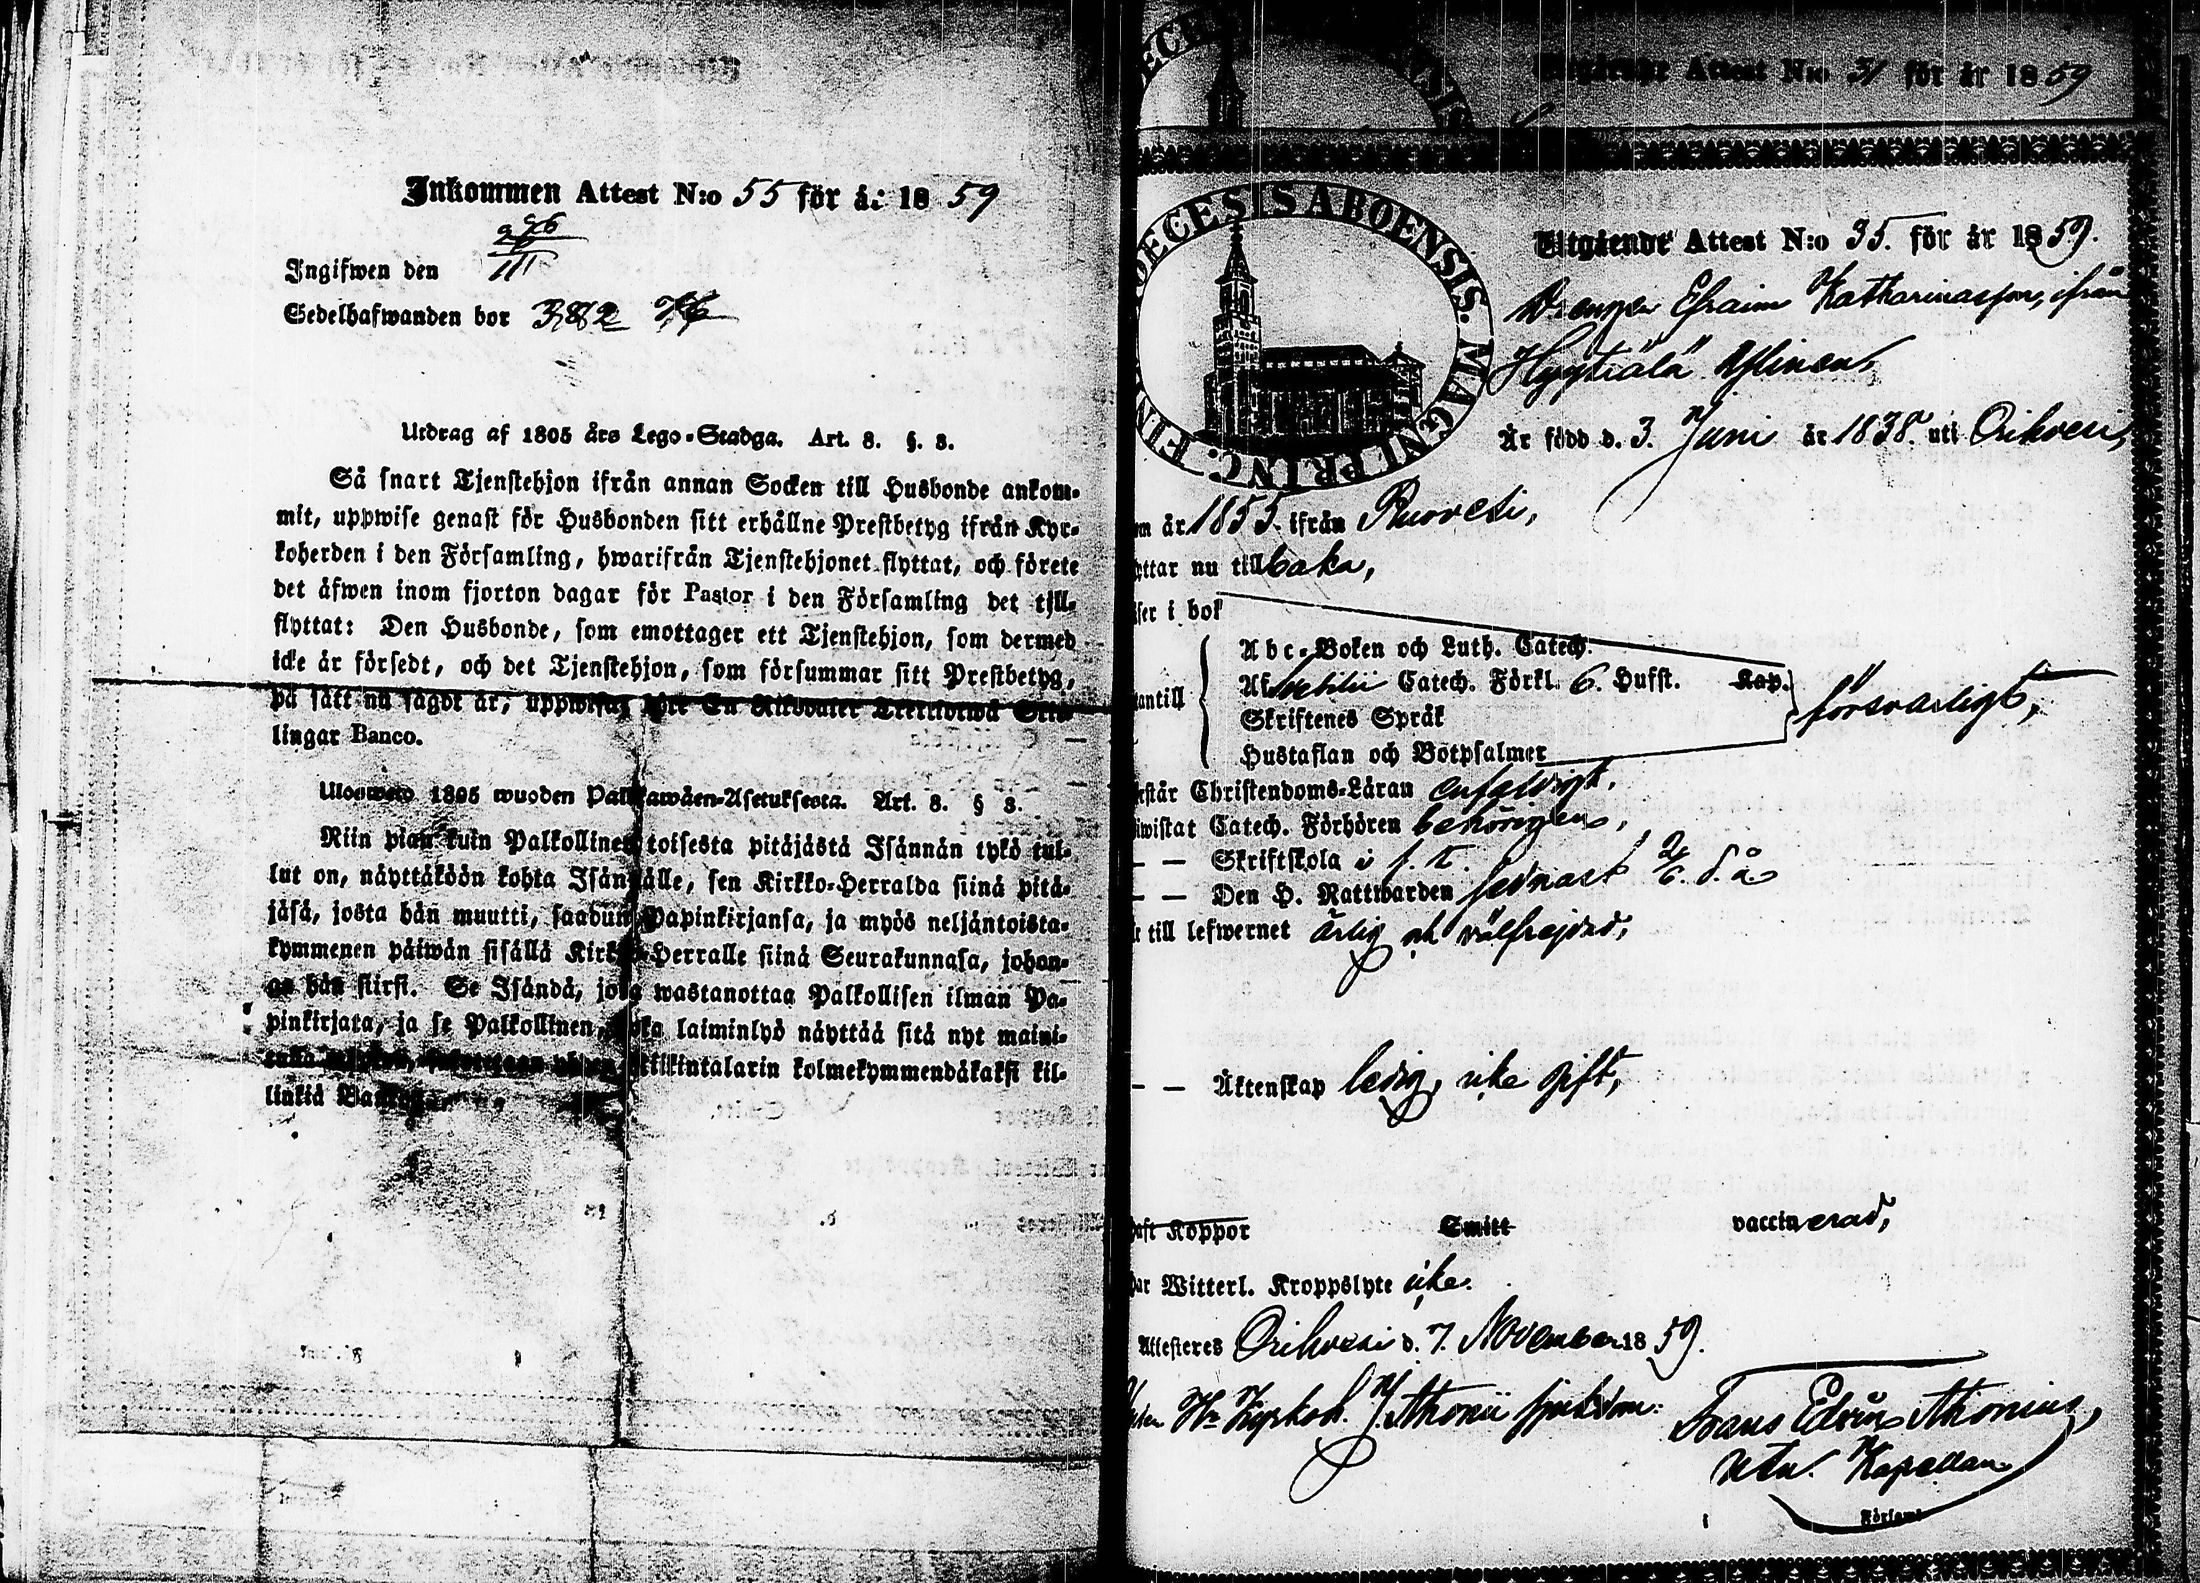 Inkommen Attest N:o 55 för år 1859
Ingifwen den
Sedelhafwanden bor 382
Utdrag af 1805 års Lego-Stadga. Art. 8. §. 8.
Så snart Tjenstehjon ifrån annan Socken till Husbonde ankom-
mit, uppwise genast för Husbonden sitt erhållne Prestbetyg ifrån Kyr-
koherden i den Församling, hwarifrån Tjenstehjonet flyttat, och förete
det äfwen inom fjorton dagar för Pastor i den Församling det till-
flyttat: Den Husbonde, som emottager ett Tjenstehjon, som dermed
icke är försedt, och det Tjenstehjon, som försummar sitt Prestbetyg,
på sätt nu sagdt är, uppwisa, En Riksdaler Trettiotwå
lingar Banco.
1805 wuoden Palkkawäen-Asetuksesta. Art. 8. § 8.
Niin pian kuin Palkollinen toisesta pitäjästä Isännän tykö tul-
lut on, näyttäköön kohta Isännälle, sen Kirkko-Herralda siinä pitä-
jäsä, josta hän muutti, saadun Papinkirjansa, ja myös neljäntoista-
kymmenen päiwän sisällä Kirkko-Herralle siinä Seurakunnasa, johon-
ga hän siirsi. Se Isändä, joka wastanottaa Palkollisen ilman Pa-
pinkirjata, ja se Palkollinen, joka laiminlyö näyttää sitä nyt maini-
Riikintalarin kolmekymmendäkaksi kil-
linkiä
Utgående Attest N:o 31 för år 1859
DIOECESIS ABOENSIS. MAGNI PRINC. FIN
Utgående Attest N:o 35. för år 1859.
Drengen Efraim Katharinasson, ifrån
Hyytiälä
Är född d. 3. Juni år 1838. uti Orihvesi,
år 1855. ifrån Ruovesi,
nu tillbaka,
i bok
Abc-Boken och Luth. Catech.
Af Svebilii Catech. Förkl. 6. Hufst. Kap.
Skriftenes Språk
Hustaflan och Botpsalmer
försvarligt,
Christendoms-Läran enfaldigt,
Catech. Förhören behörigen,
— — Skriftskola i
— — Den H. Nattwarden sednast 2/6. d. å.
till lefwernet ärlig och välfrejdad,
— — Äktenskap ledig, icke gift,
Koppor Smitt vaccinerad,
Witterl. Kroppslyte icke.
Attesteres Orihvesi d. 7. November 1859.
Hr Kyrkoh. Frans Edvin Ahonius,
Kapellan.
Församl.